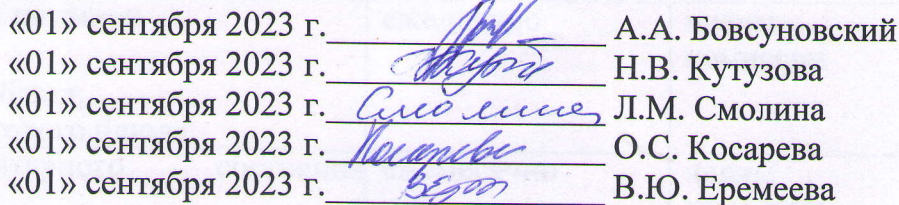 «01» сентября 2023 г. А.А. Бовсуновский
«01» сентября 2023 г. Н.В. Кутузова
«01» сентября 2023 г. Смолина Л.М. Смолина
«01» сентября 2023 г. О.С. Косарева
«01» сентября 2023 г. В.Ю. Еремеева